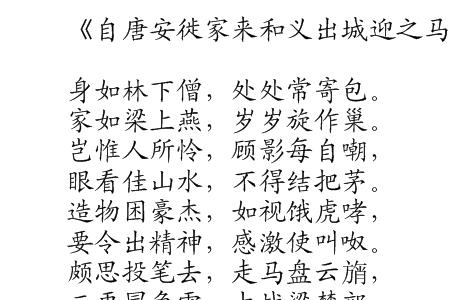 《自唐安徙家来和义出城迎之马
身如林下僧，处处常寄包。
家如梁上燕，岁岁旋作巢。
岂惟人所怜，顾影每自嘲，
眼看佳山水，不得结把茅。
造物困豪杰，如视饿虎哮，
要令出精神，感激使叫呶。
颇思投笔去，走马盘云旓，